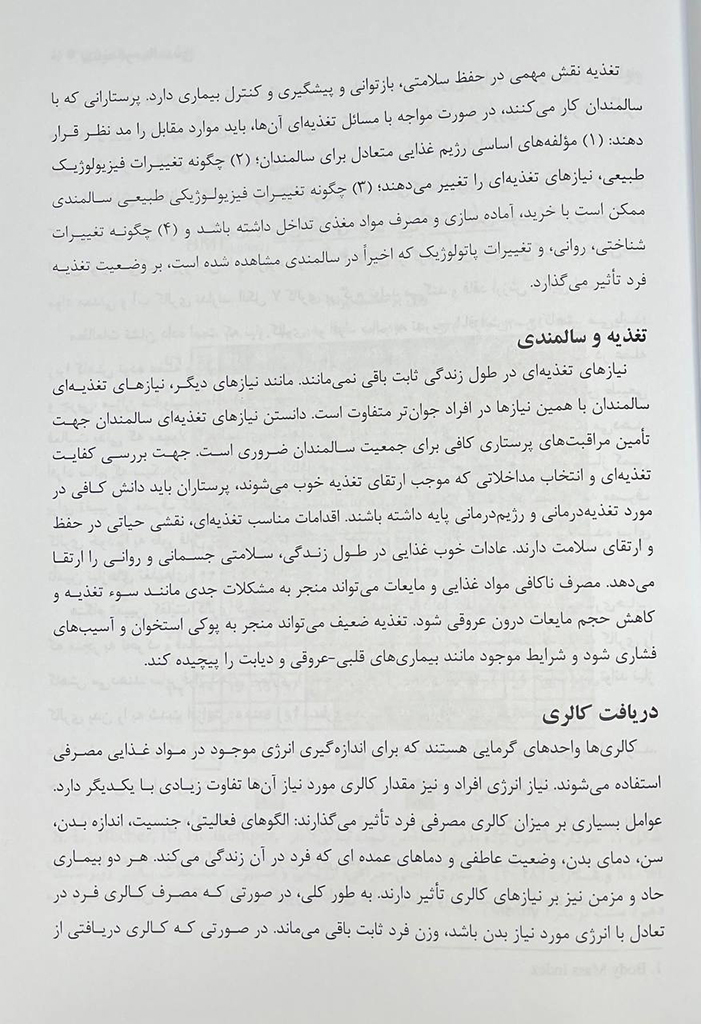 تغذیه نقش مهمی در حفظ سلامتی، بازتوانی و پیشگیری و کنترل بیماری دارد. پرستارانی که با
سالمندان کار می‌کنند، در صورت مواجه با مسائل تغذیه‌ای آن‌ها، باید موارد مقابل را مد نظر قرار
دهند: (۱) مؤلفه‌های اساسی رژیم غذایی متعادل برای سالمندان؛ (۲) چگونه تغییرات فیزیولوژیک
طبیعی، نیازهای تغذیه‌ای را تغییر می‌دهند؛ (۳) چگونه تغییرات فیزیولوژیکی طبیعی سالمندی
ممکن است با خرید، آماده سازی و مصرف مواد مغذی تداخل داشته باشد و (۴) چگونه تغییرات
شناختی، روانی، و تغییرات پاتولوژیک که اخیراً در سالمندی مشاهده شده است، بر وضعیت تغذیه
فرد تأثیر می‌گذارد.
تغذیه و سالمندی
نیازهای تغذیه‌ای در طول زندگی ثابت باقی نمی‌مانند. مانند نیازهای دیگر، نیازهای تغذیه‌ای
سالمندان با همین نیازها در افراد جوان‌تر متفاوت است. دانستن نیازهای تغذیه‌ای سالمندان جهت
تأمین مراقبت‌های پرستاری کافی برای جمعیت سالمندان ضروری است. جهت بررسی کفایت
تغذیه‌ای و انتخاب مداخلاتی که موجب ارتقای تغذیه خوب می‌شوند، پرستاران باید دانش کافی در
مورد تغذیه‌درمانی و رژیم‌درمانی پایه داشته باشند. اقدامات مناسب تغذیه‌ای، نقشی حیاتی در حفظ
و ارتقای سلامت دارند. عادات خوب غذایی در طول زندگی، سلامتی جسمانی و روانی را ارتقا
می‌دهد. مصرف ناکافی مواد غذایی و مایعات می‌تواند منجر به مشکلات جدی مانند سوء تغذیه و
کاهش حجم مایعات درون عروقی شود. تغذیه ضعیف می‌تواند منجر به پوکی استخوان و آسیب‌های
فشاری شود و شرایط موجود مانند بیماری‌های قلبی-عروقی و دیابت را پیچیده کند.
دریافت کالری
کالری‌ها واحدهای گرمایی هستند که برای اندازه‌گیری انرژی موجود در مواد غذایی مصرفی
استفاده می‌شوند. نیاز انرژی افراد و نیز مقدار کالری مورد نیاز آن‌ها تفاوت زیادی با یکدیگر دارد.
عوامل بسیاری بر میزان کالری مصرفی فرد تأثیر می‌گذارند: الگوهای فعالیتی، جنسیت، اندازه بدن،
سن، دمای بدن، وضعیت عاطفی و دماهای عمده ای که فرد در آن زندگی می‌کند. هر دو بیماری
حاد و مزمن نیز بر نیازهای کالری تأثیر دارند. به طور کلی، در صورتی که مصرف کالری فرد در
تعادل با انرژی مورد نیاز بدن باشد، وزن فرد ثابت باقی می‌ماند. در صورتی که کالری دریافتی از